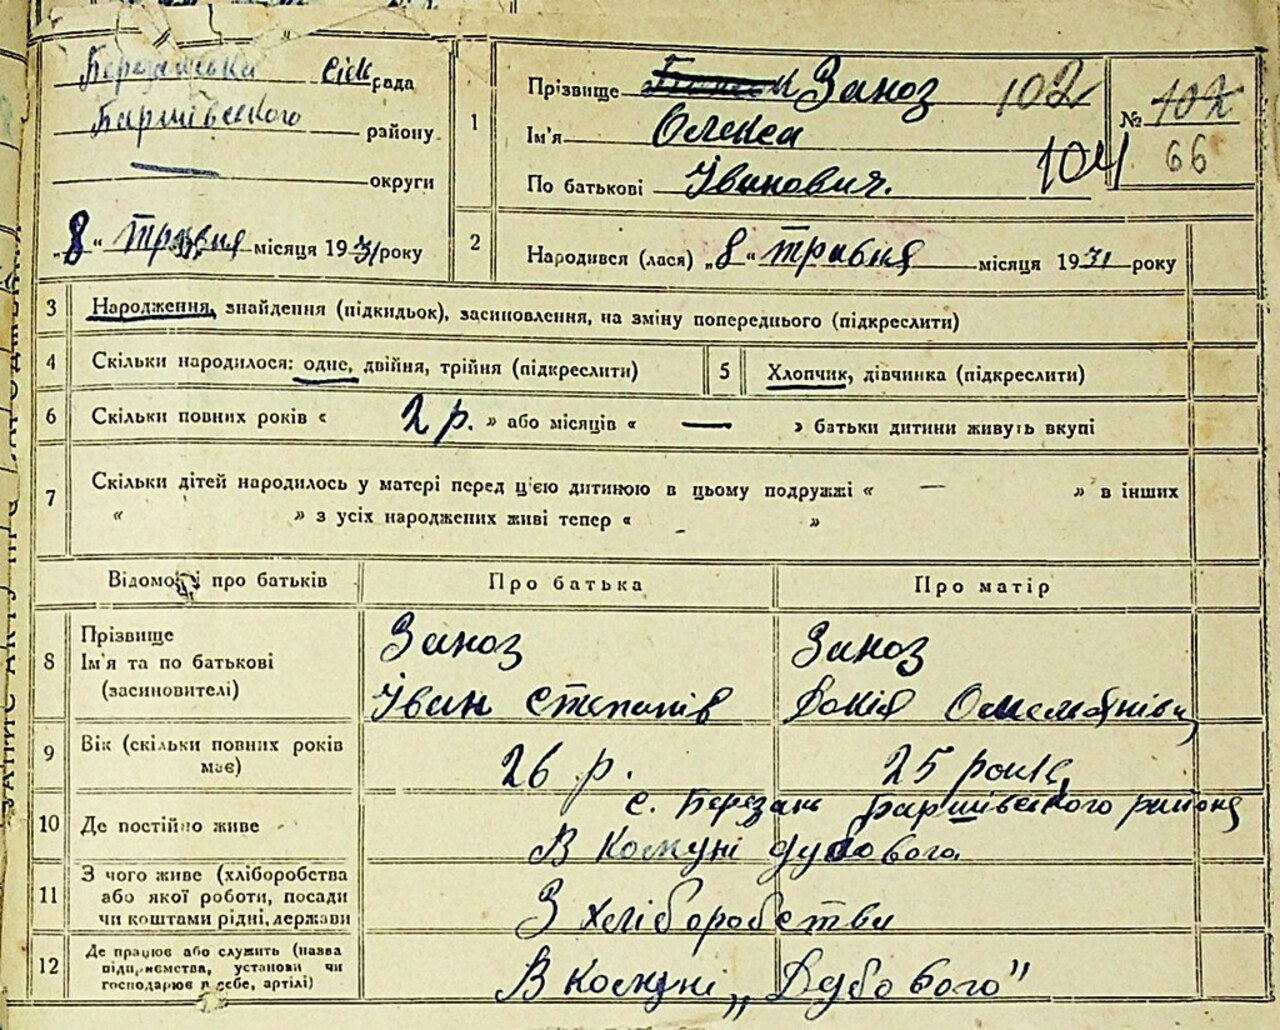 Березанська сіль рада
Баришівського району
— округи
„8“ травня місяця 1931 року
1
Прізвище Заноз 102
Ім'я Олекса
По батькові Іванович. 104
№ 102
66
2 Народився (лася) „8“ травня місяця 1931 року
3 Народження, знайдення (підкидьок), засиновлення, на зміну попереднього (підкреслити)
4 Скільки народилося: одне, двійня, трійня (підкреслити)
5 Хлопчик, дівчинка (підкреслити)
6 Скільки повних років « 2 р. » або місяців « — » батьки дитини живуть вкупі
7 Скільки дітей народилось у матері перед ц'єю дитиною в цьому подружжі « — » в інших
« » з усіх народжених живі тепер « - »
Відомості про батьків Про батька Про матір
8 Прізвище
Ім'я та по батькові
(засиновителі)
Заноз
Іван Степанів
Заноз
Докія Омелянівна
9 Вік (скільки повних років
має)
26 р. 25 років
10 Де постійно живе
с. Березань Баришівського району
В Комуні Дубового
11 З чого живе (хліборобства
або якої роботи, посади
чи коштами рідні, держави
З хліборобства
12 Де працює або служить (назва
підприємства, установи чи
господарює в себе, артілі)
В комуні „Дубового"